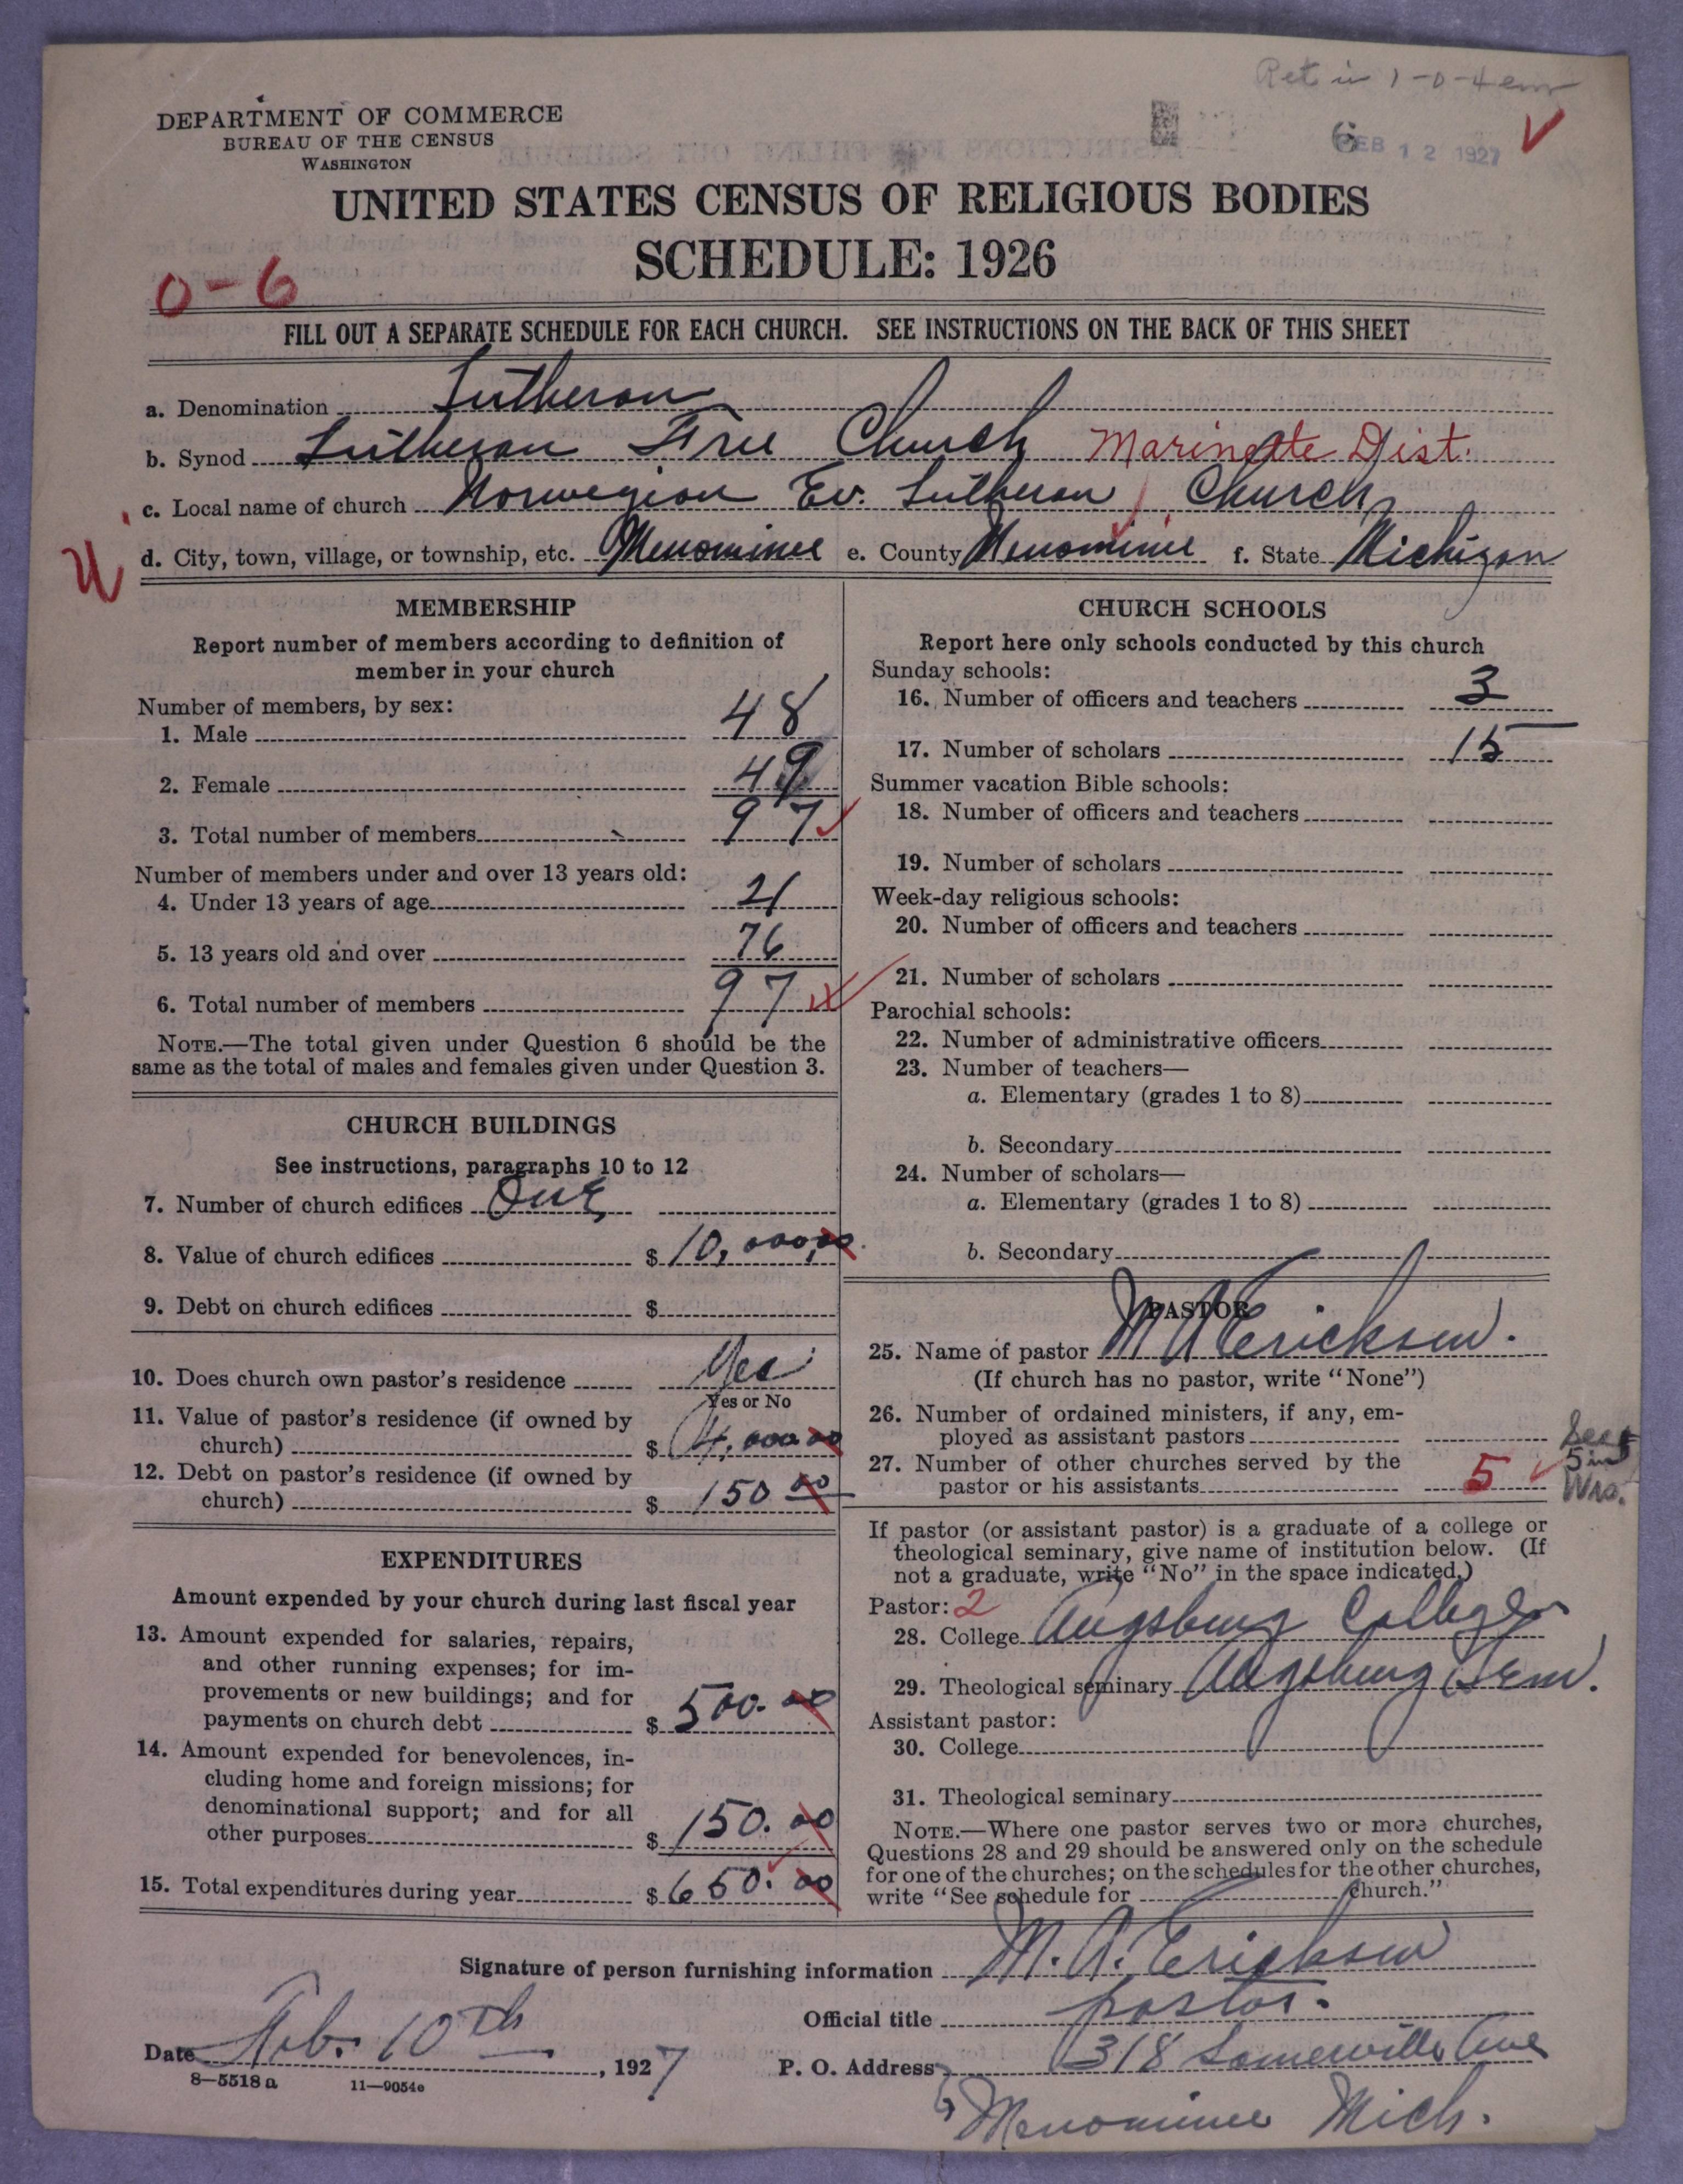 Ret in 1-0-4 em
DEPARTMENT OF COMMERCE
BUREAU OF THE CENSUS
WASHINGTON
6
FEB 12 1927
UNITED STATES CENSUS OF RELIGIOUS BODIES
SCHEDULE: 1926
0-6
FILL OUT A SEPARATE SCHEDULE FOR EACH CHURCH. SEE INSTRUCTIONS ON THE BACK OF THIS SHEET
a. Denomination Lutheran
b. Synod Lutheran Free Church Marinette Dist.
c. Local name of church Norwegian Ev. Lutheran Church
U
d. City, town, village, or township, etc. Menominee e. County Menominee f. State Michigan
MEMBERSHIP
Report number of members according to definition of
member in your church
Number of members, by sex:
1. Male 48
2. Female 49
3. Total number of members 97
Number of members under and over 13 years old:
4. Under 13 years of age 21
5. 13 years old and over 76
6. Total number of members 97
NOTE.—The total given under Question 6 should be the
same as the total of males and females given under Question 3.
CHURCH BUILDINGS
See instructions, paragraphs 10 to 12
7. Number of church edifices One
8. Value of church edifices $ 10,000,00
9. Debt on church edifices $
10. Does church own pastor's residence Yes
Yes or No
11. Value of pastor's residence (if owned by
church) $ 4,000 00
12. Debt on pastor's residence (if owned by
church) $ 150 00
EXPENDITURES
Amount expended by your church during last fiscal year
13. Amount expended for salaries, repairs,
and other running expenses; for im-
provements or new buildings; and for
payments on church debt $ 500.00
14. Amount expended for benevolences, in-
cluding home and foreign missions; for
denominational support; and for all
other purposes $ 150.00
15. Total expenditures during year $ 650.00
CHURCH SCHOOLS
Report here only schools conducted by this church
Sunday schools:
16. Number of officers and teachers 3
17. Number of scholars 15
Summer vacation Bible schools:
18. Number of officers and teachers
19. Number of scholars
Week-day religious schools:
20. Number of officers and teachers
21. Number of scholars
Parochial schools:
22. Number of administrative officers
23. Number of teachers—
a. Elementary (grades 1 to 8)
b. Secondary
24. Number of scholars—
a. Elementary (grades 1 to 8)
b. Secondary
PASTOR
25. Name of pastor M A Erickson.
(If church has no pastor, write "None")
26. Number of ordained ministers, if any, em-
ployed as assistant pastors
27. Number of other churches served by the
pastor or his assistants 5
5 in
Wis.
If pastor (or assistant pastor) is a graduate of a college or
theological seminary, give name of institution below. (If
not a graduate, write "No" in the space indicated.)
Pastor: 2
28. College Augsburg College
29. Theological seminary Augsburg Sem.
Assistant pastor:
30. College
31. Theological seminary
NOTE.—Where one pastor serves two or more churches,
Questions 28 and 29 should be answered only on the schedule
for one of the churches; on the schedules for the other churches,
write "See schedule for church."
Signature of person furnishing information M. A. Erickson
Official title pastor.
Date Feb. 10th, 1927
P. O. Address 318 Somerville Ave
Menominee Mich.
8—5518 a 11—9054e